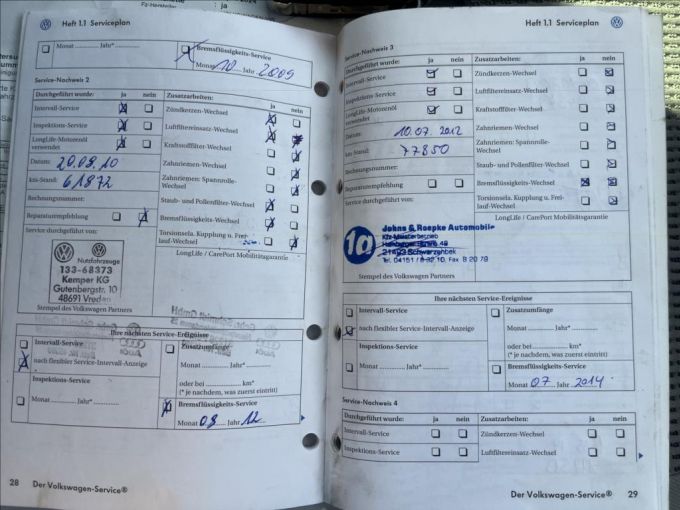 Heft 1.1 Serviceplan
Monat Jahr*
Bremsflüssigkeits-Service
Monat 10 Jahr 2009
Service-Nachweis 2
Durchgeführt wurde: ja nein
Intervall-Service
Inspektions-Service
LongLife-Motorenöl
verwendet
Datum: 20.09.10
km-Stand: 61872
Rechnungsnummer:
Reparaturempfehlung
Service durchgeführt von:
Nutzfahrzeuge
133-68373
Kemper KG
Gutenbergstr. 10
48691 Vreden
Stempel des Volkswagen Partners
Zusatzarbeiten: ja nein
Zündkerzen-Wechsel
Luftfiltereinsatz-Wechsel
Kraftstofffilter-Wechsel
Zahnriemen-Wechsel
Zahnriemen- Spannrolle-
Wechsel
Staub- und Pollenfilter-Wechsel
Bremsflüssigkeits-Wechsel
Torsionsela. Kupplung u. Frei-
lauf-Wechsel
LongLife / CarePort Mobilitätsgarantie
Ihre nächsten Service-Ereignisse
Intervall-Service
nach flexibler Service-Intervall-Anzeige
Inspektions-Service
Monat Jahr*
Zusatzumfänge
Monat Jahr*
oder bei km*
(* je nachdem, was zuerst eintritt)
Bremsflüssigkeits-Service
Monat 08 Jahr 12
28 Der Volkswagen-Service®
Heft 1.1 Serviceplan
Service-Nachweis 3
Durchgeführt wurde: ja nein
Intervall-Service
Inspektions-Service
LongLife-Motorenöl
verwendet
Datum: 10.07.2012
km-Stand: 77850
Rechnungsnummer:
Reparaturempfehlung
Service durchgeführt von:
1a
Johns & Roepke Automobile
Kfz-Meisterbetrieb
21493 Schwarzenbek
Stempel des Volkswagen Partners
Zusatzarbeiten: ja nein
Zündkerzen-Wechsel
Luftfiltereinsatz-Wechsel
Kraftstofffilter-Wechsel
Zahnriemen-Wechsel
Zahnriemen- Spannrolle-
Wechsel
Staub- und Pollenfilter-Wechsel
Bremsflüssigkeits-Wechsel
Torsionsela. Kupplung u. Frei-
lauf-Wechsel
LongLife / CarePort Mobilitätsgarantie
Ihre nächsten Service-Ereignisse
Intervall-Service
nach flexibler Service-Intervall-Anzeige
Inspektions-Service
Monat Jahr*
Zusatzumfänge
Monat Jahr*
oder bei km*
(* je nachdem, was zuerst eintritt)
Bremsflüssigkeits-Service
Monat 07 Jahr 2014
Service-Nachweis 4
Durchgeführt wurde: ja nein
Intervall-Service
Inspektions-Service
Zusatzarbeiten: ja nein
Zündkerzen-Wechsel
Luftfiltereinsatz-Wechsel
Der Volkswagen-Service® 29